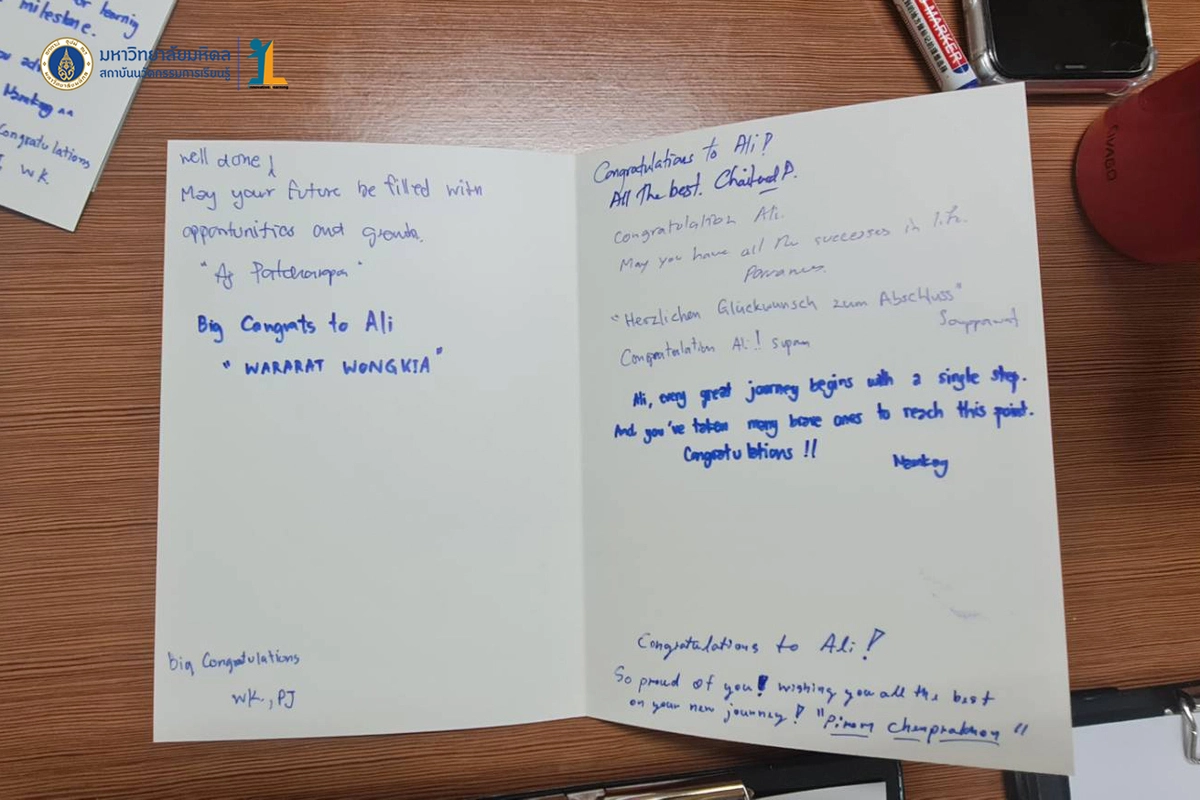 or learning
milestone.
Congratulations
WK
มหาวิทยาลัยมหิดล
สถาบันนวัตกรรมการเรียนรู้
IL
MARKER
well done!
May your future be filled with
opportunities and growth.
"Aj Patcharapa"
Big Congrats to Ali
"WARARAT WONGKIA"
big Congratulations
WK., PJ
Congratulations to Ali!
All The best. P.
Congratulation Ali.
May you have all the successes in life.
"Herzlichen Glückwunsch zum Abschluss"
Congratulation Ali!
Ali, every great journey begins with a single step.
And you've taken many brave ones to reach this point.
Congratulations !!
Congratulations to Ali!
So proud of you! wishing you all the best
on your new journey! "Pirom Chenprakhon"